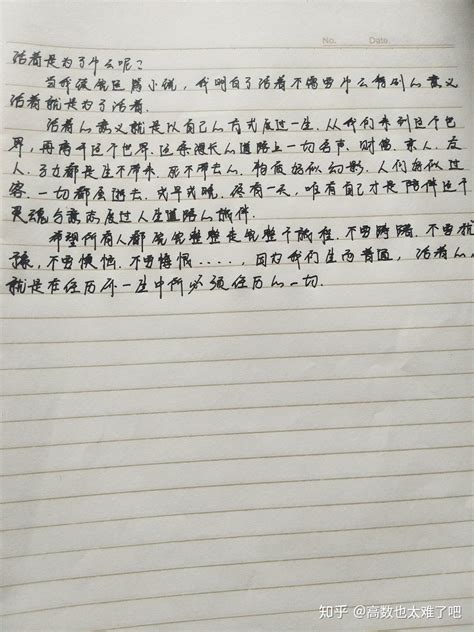 No.  Date.
活着是为了什么呢?
当我读完这篇小说,我明白了活着不需要什么特别的意义
活着就是为了活着.
活着的意义就是以自己的方式度过一生.从我们来到这个世
界,再离开这个世界.这条漫长的道路上一切名声、财富、亲人、友
人、权力都是生不带来、死不带去的.物质好似幻影、人们好似过
客.一切都会逝去、或早或晚.终有一天,唯有自己才是陪伴这个
灵魂与意志度过人生道路的旅伴.
希望所有人都能完完整整走完整个旅程.不要踌躇.不要犹
豫,不要懊恼.不要悔恨....,因为我们生而普通,活着的,
就是在经历一生中所必须经历的一切.
知乎 @高数也太难了吧